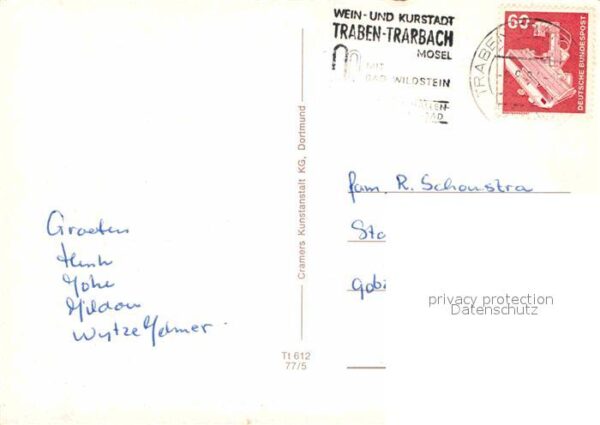 WEIN- UND KURSTADT
TRABEN-TRARBACH
MOSEL
MIT
BAD WILDSTEIN
60
DEUTSCHE BUNDESPOST
TRABEN
Cramers Kunstanstalt KG, Dortmund
fam. R. Schoustra
Sta
Gobi
Groeten
Henk
Yoke
Wytze Jelmer.
privacy protection
Datenschutz
Tt 612
77/5